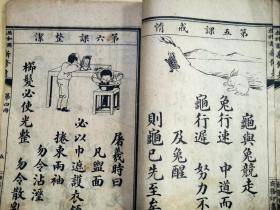 第五課 戒惰
龜與兔競走
兔行速 中道而
龜行遲 努力不
及兔醒
則龜已先至矣
第六課 整潔
屠羲時曰
凡盥面
必以巾遮護衣領
捲束兩袖
勿令沾溼
櫛髮必使光整
勿令散亂
第四冊